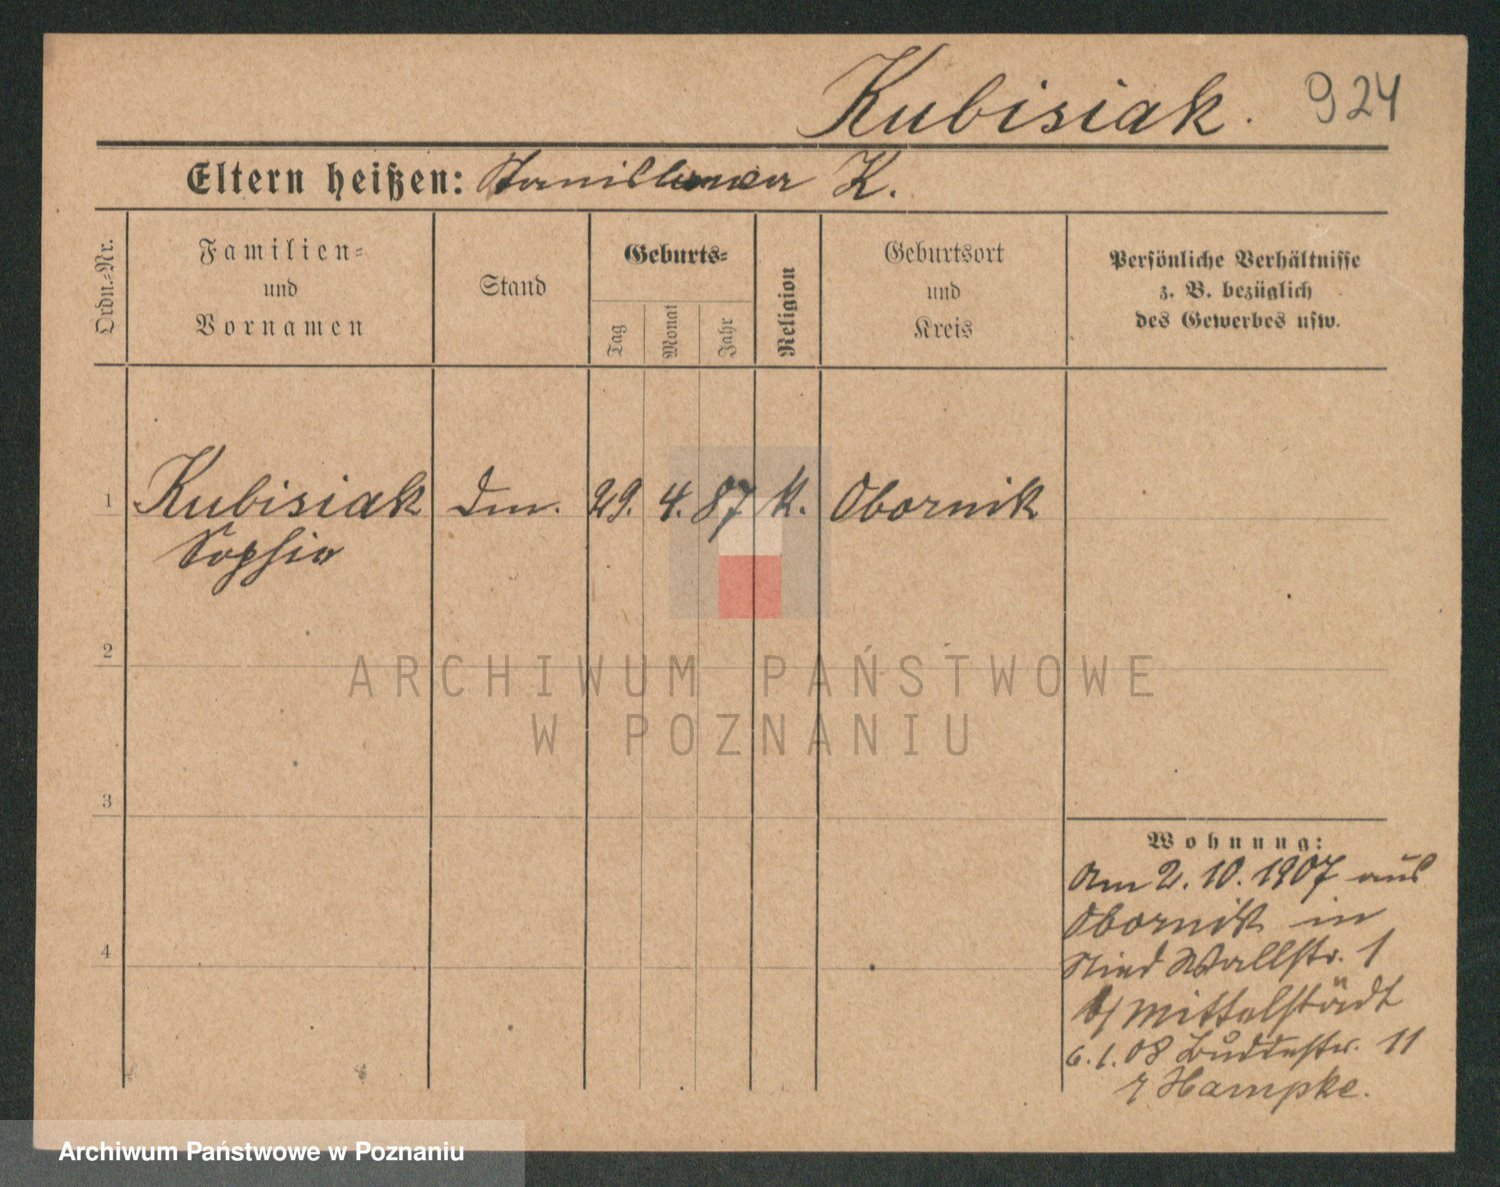 Kubisiak. 924
Eltern heißen: Stanislaus K.
Ordn.=Nr.
Familien=
und
Vornamen
Stand
Geburts=
Tag
Monat
Jahr
Religion
Geburtsort
und
Kreis
Persönliche Verhältnisse
z. B. bezüglich
des Gewerbes usw.
1 Kubisiak 29. 4. 87 K. Obornik
Sophia
2
3
4
Wohnung:
Am 2. 10. 1907 aus
Obornik in
Wallstr. 1
b/ Mittelstädt
6. 1. 08 11
Hampke.
ARCHIWUM PAŃSTWOWE
W POZNANIU
Archiwum Państwowe w Poznaniu